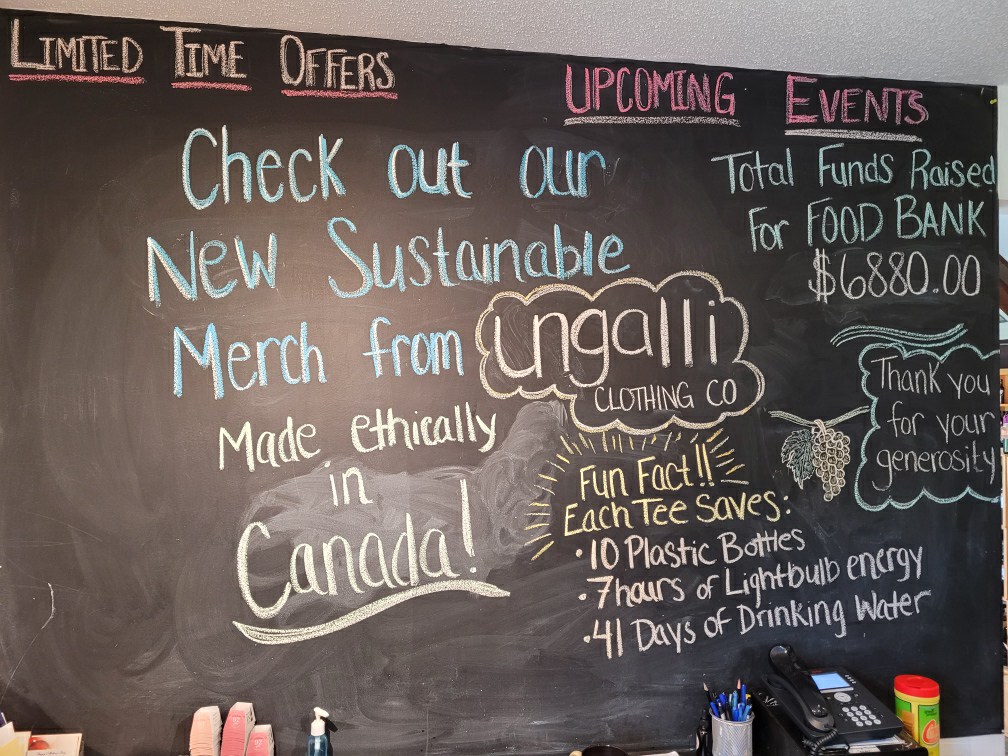 LIMITED TIME OFFERS
Check out our
New Sustainable
Merch from ungalli
CLOTHING CO
Made ethically
in
Canada!
Fun Fact!!
Each Tee Saves:
• 10 Plastic Bottles
• 7 hours of Lightbulb energy
• 41 Days of Drinking Water
UPCOMING EVENTS
Total Funds Raised
For FOOD BANK
$6880.00
Thank you
for your
generosity